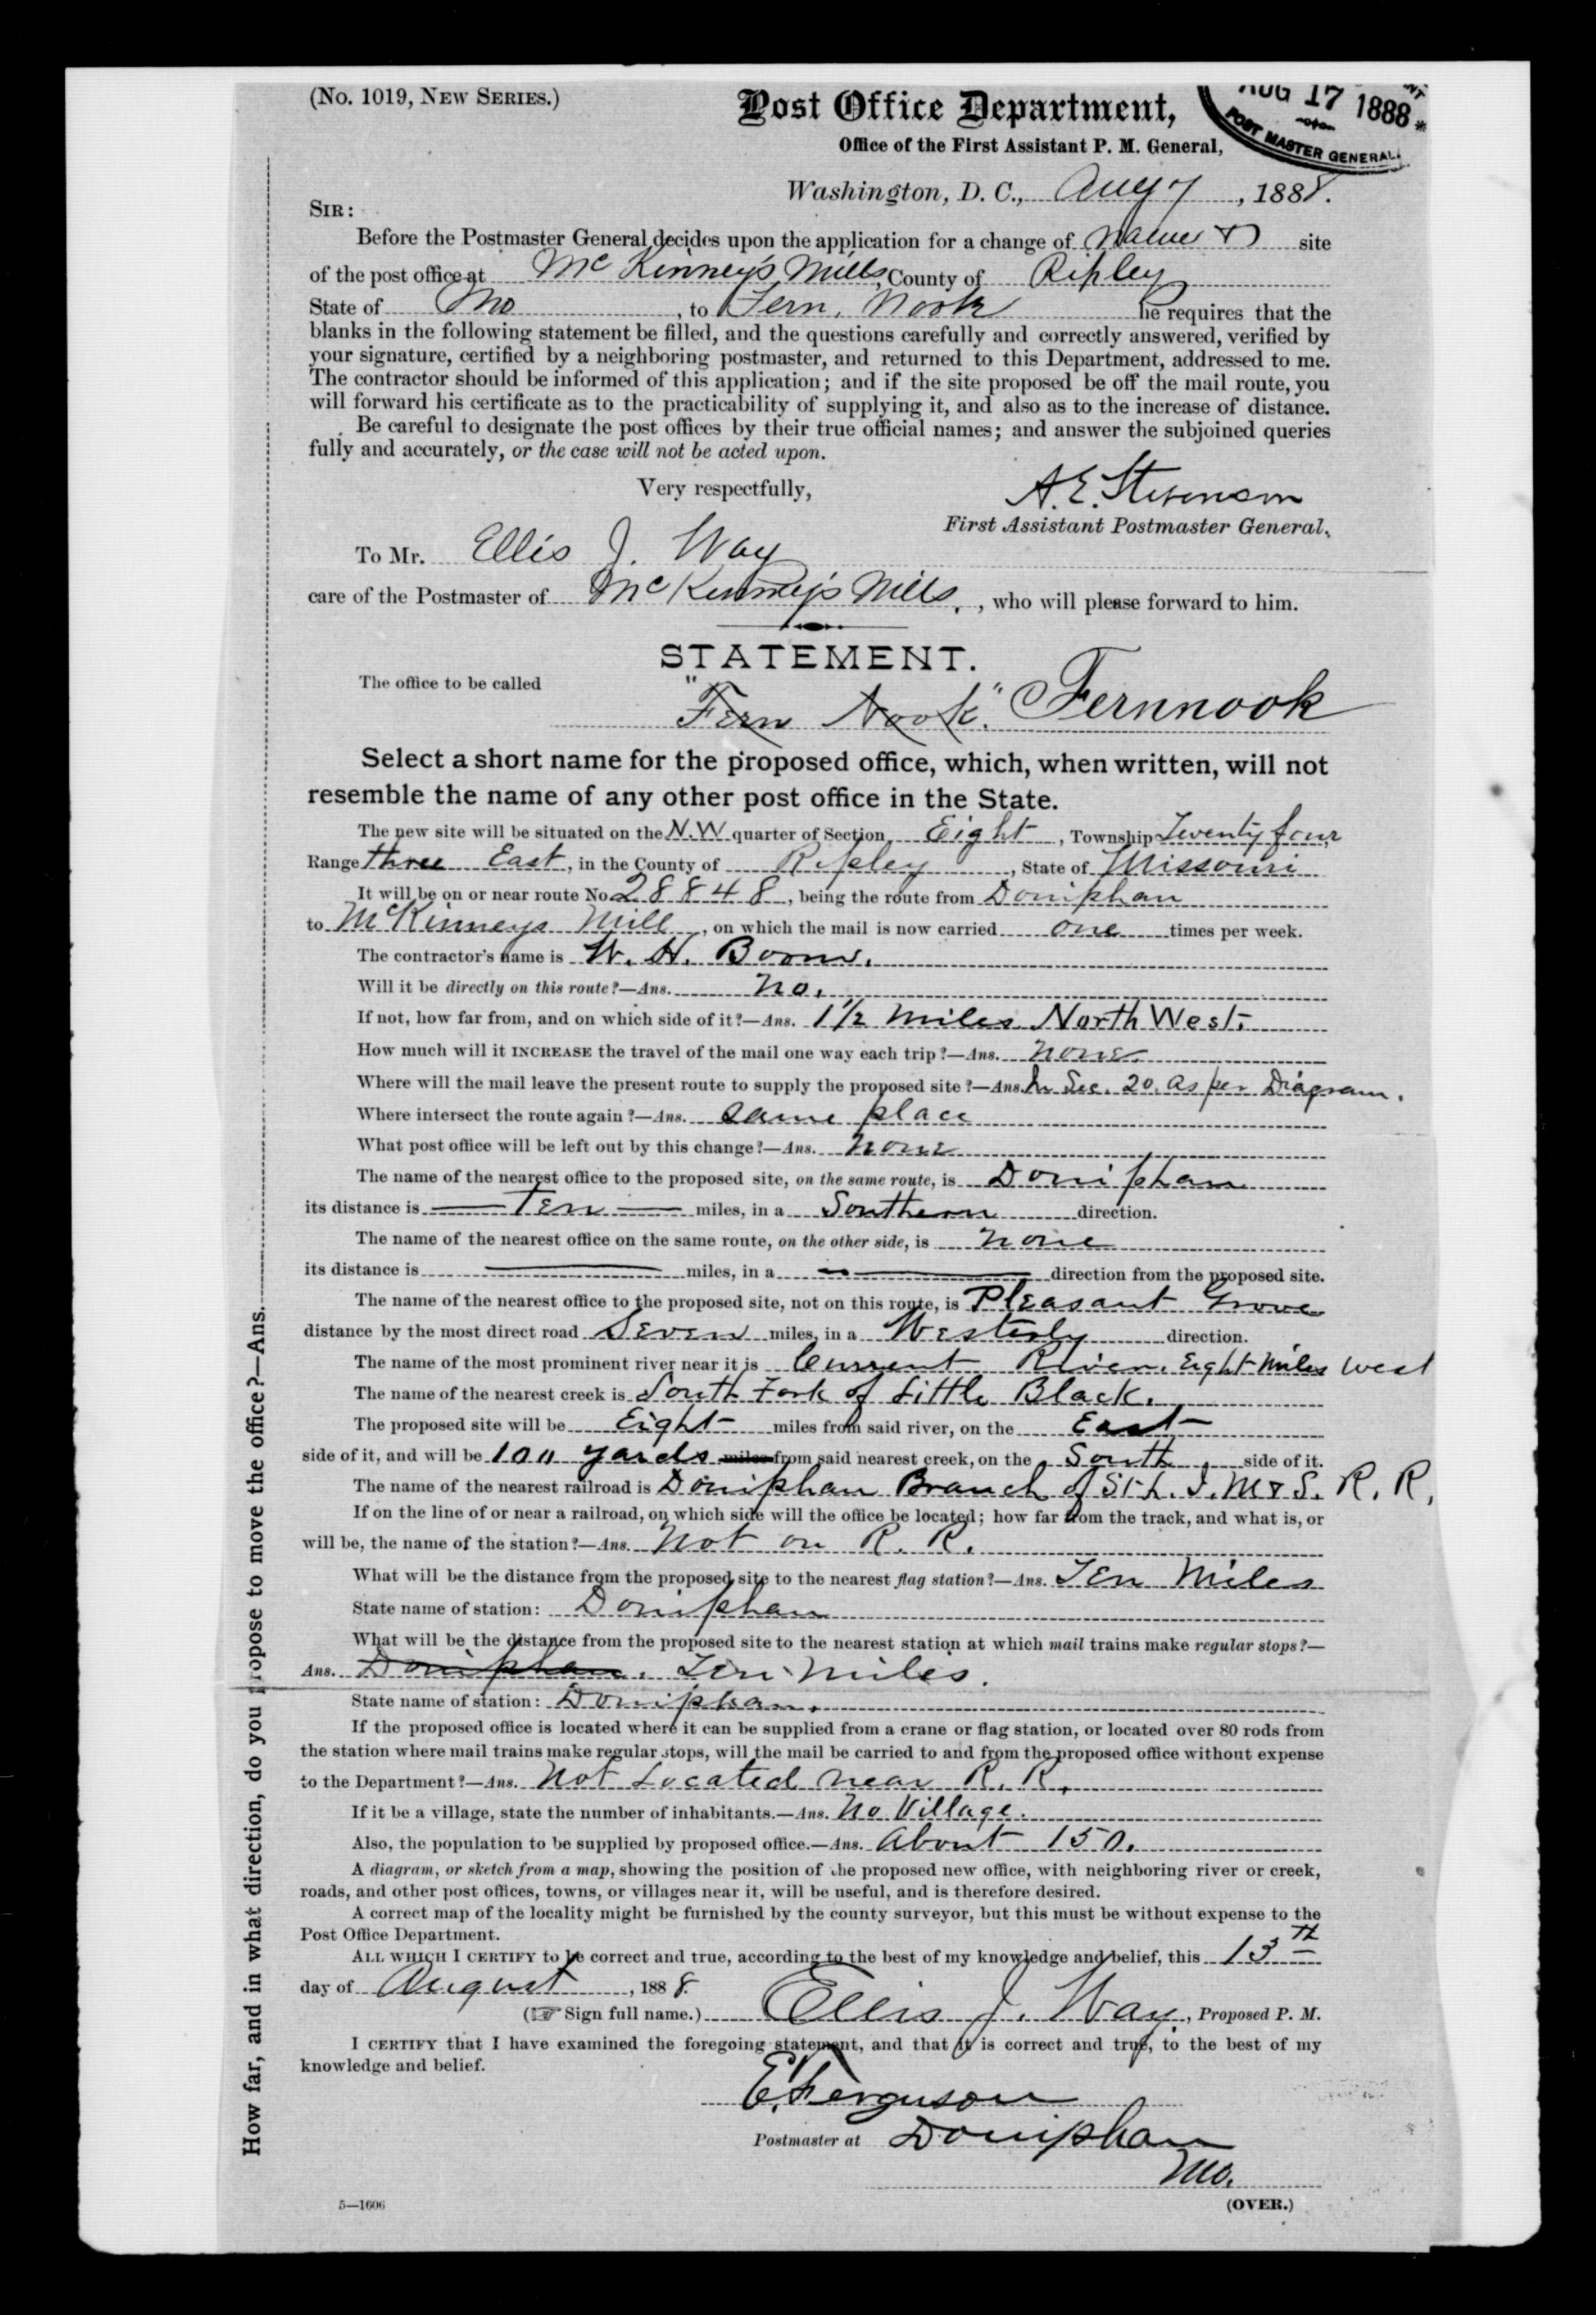 (No. 1019, New Series.)
Post Office Department,
AUG 17 1888
POST MASTER GENERAL
Office of the First Assistant P. M. General,
Washington, D. C., Aug 7, 1888.
Sir:
Before the Postmaster General decides upon the application for a change of name & site
of the post office at McKinney's Mills, County of Ripley
State of Mo, to Fern Nook he requires that the
blanks in the following statement be filled, and the questions carefully and correctly answered, verified by
your signature, certified by a neighboring postmaster, and returned to this Department, addressed to me.
The contractor should be informed of this application; and if the site proposed be off the mail route, you
will forward his certificate as to the practicability of supplying it, and also as to the increase of distance.
Be careful to designate the post offices by their true official names; and answer the subjoined queries
fully and accurately, or the case will not be acted upon.
Very respectfully,
A. E. Stevenson
First Assistant Postmaster General.
To Mr. Ellis J. Way
care of the Postmaster of McKinney's Mills, who will please forward to him.
STATEMENT.
The office to be called "Fern Nook". Fernnook
Select a short name for the proposed office, which, when written, will not
resemble the name of any other post office in the State.
The new site will be situated on the N.W quarter of Section Eight, Township Twenty four
Range three East, in the County of Ripley, State of Missouri
It will be on or near route No 28848, being the route from Doniphan
to McKinneys Mill, on which the mail is now carried one times per week.
The contractor's name is W. H. Boone.
Will it be directly on this route?—Ans. No.
If not, how far from, and on which side of it?—Ans. 1½ miles North West.
How much will it INCREASE the travel of the mail one way each trip?—Ans. none
Where will the mail leave the present route to supply the proposed site?—Ans. In Sec. 20. As per Diagram.
Where intersect the route again?—Ans. Same place
What post office will be left out by this change?—Ans. none
The name of the nearest office to the proposed site, on the same route, is Doniphan
its distance is Ten miles, in a Southern direction.
The name of the nearest office on the same route, on the other side, is none
its distance is miles, in a direction from the proposed site.
The name of the nearest office to the proposed site, not on this route, is Pleasant Grove
distance by the most direct road Seven miles, in a Westerly direction.
The name of the most prominent river near it is Current River. Eight Miles west
The name of the nearest creek is South Fork of Little Black.
The proposed site will be Eight miles from said river, on the East
side of it, and will be 100 yards miles from said nearest creek, on the South side of it.
The name of the nearest railroad is Doniphan Branch of St. L. I. M & S. R. R.
If on the line of or near a railroad, on which side will the office be located; how far from the track, and what is, or
will be, the name of the station?—Ans. Not on R. R.
What will be the distance from the proposed site to the nearest flag station?—Ans. Ten Miles
State name of station: Doniphan
What will be the distance from the proposed site to the nearest station at which mail trains make regular stops?—
Ans. Doniphan. Ten Miles.
State name of station: Doniphan.
If the proposed office is located where it can be supplied from a crane or flag station, or located over 80 rods from
the station where mail trains make regular stops, will the mail be carried to and from the proposed office without expense
to the Department?—Ans. Not Located near R. R.
If it be a village, state the number of inhabitants.—Ans. No Village.
Also, the population to be supplied by proposed office.—Ans. About 150.
A diagram, or sketch from a map, showing the position of the proposed new office, with neighboring river or creek,
roads, and other post offices, towns, or villages near it, will be useful, and is therefore desired.
A correct map of the locality might be furnished by the county surveyor, but this must be without expense to the
Post Office Department.
All which I certify to be correct and true, according to the best of my knowledge and belief, this 13th
day of August, 1888.
(☞ Sign full name.) Ellis J. Way, Proposed P. M.
I certify that I have examined the foregoing statement, and that it is correct and true, to the best of my
knowledge and belief.
E. Ferguson
Postmaster at Doniphan
Mo.
5—1606
(OVER.)
How far, and in what direction, do you propose to move the office?—Ans.